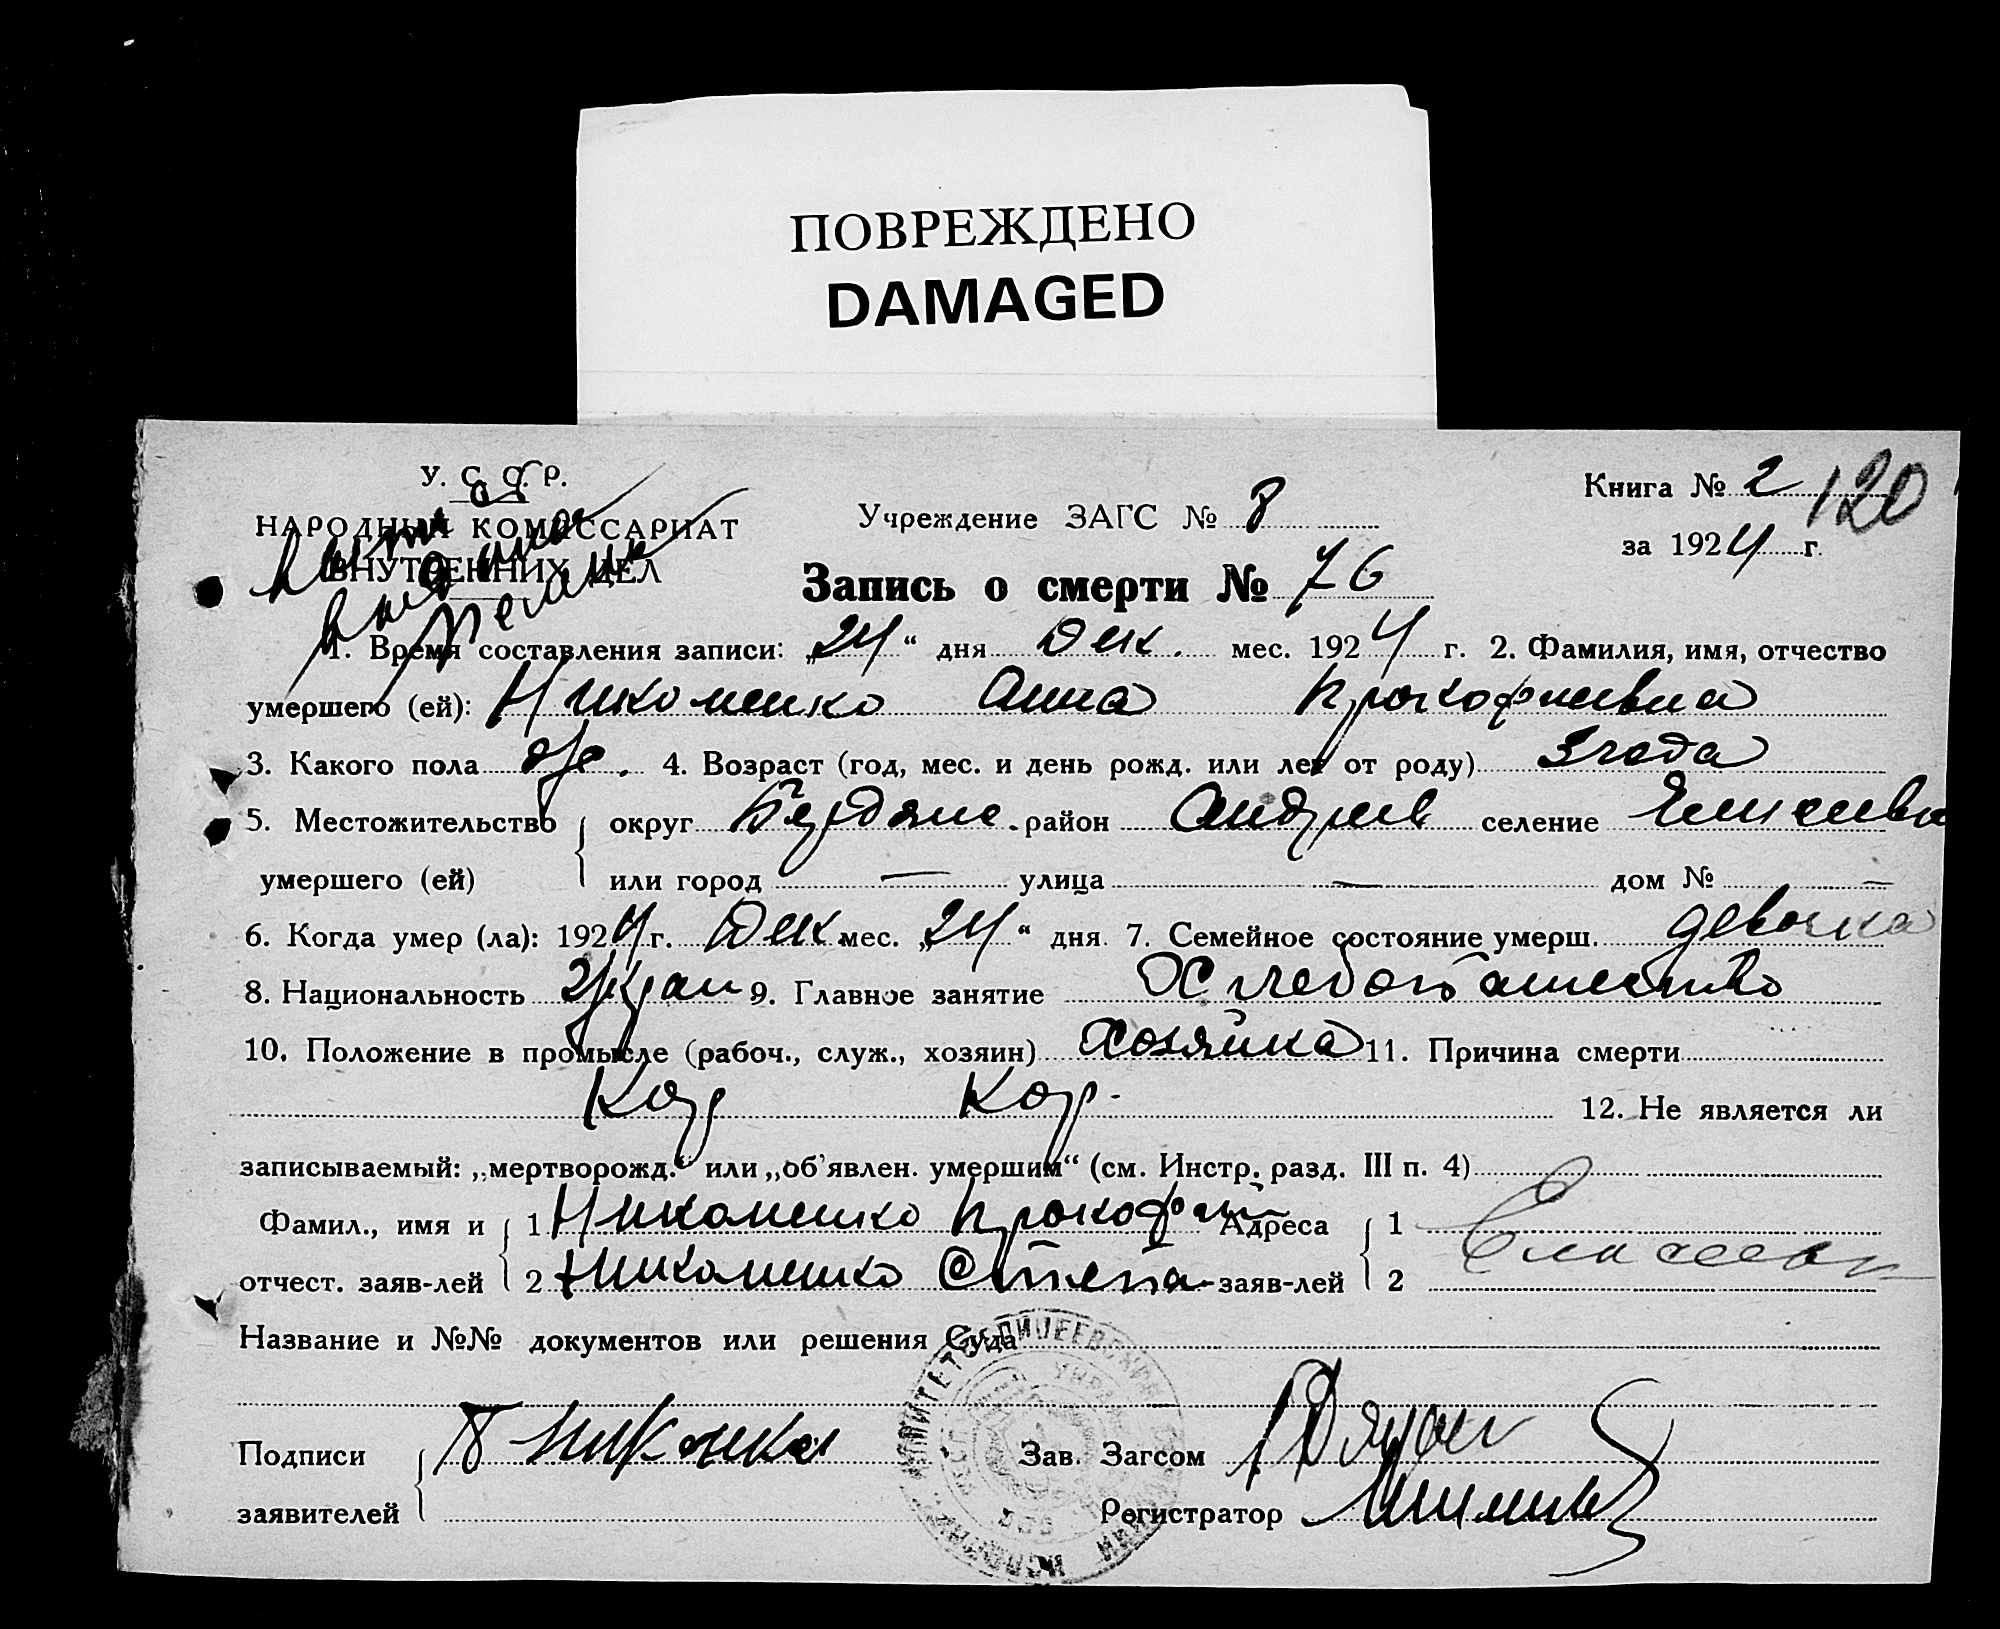 ПОВРЕЖДЕНО
DAMAGED
У. С. С. Р.
НАРОДНЫЙ КОМИССАРИАТ
ВНУТРЕННИХ ДЕЛ
Учреждение ЗАГС № 8
Книга № 2 120
за 1924 г.
Запись о смерти № 76
1. Время составления записи: „24“ дня Дек. мес. 1924 г. 2. Фамилия, имя, отчество
умершего (ей): Никоненко Анна Прокофиевна
3. Какого пола Же. 4. Возраст (год, мес. и день рожд. или лет от роду) 3 года
5. Местожительство округ Бердянс. район Андреев селение Елисеевка
умершего (ей) или город — улица — дом № —
6. Когда умер (ла): 1924 г. Дек. мес. „24“ дня. 7. Семейное состояние умерш. девочка
8. Национальность Украин 9. Главное занятие Хлебопашество
10. Положение в промысле (рабоч., служ., хозяин) Хозяйка 11. Причина смерти
Кор Кор. 12. Не является ли
записываемый: „мертворожд.“ или „об'явлен. умершим“ (см. Инстр. разд. III п. 4)
Фамил., имя и 1 Никоненко Прокофий Адреса 1
отчест. заяв-лей 2 Никоненко Степа- заяв-лей 2 Елисеевк
Название и №№ документов или решения Суда
Подписи П Зав. Загсом
заявителей Регистратор